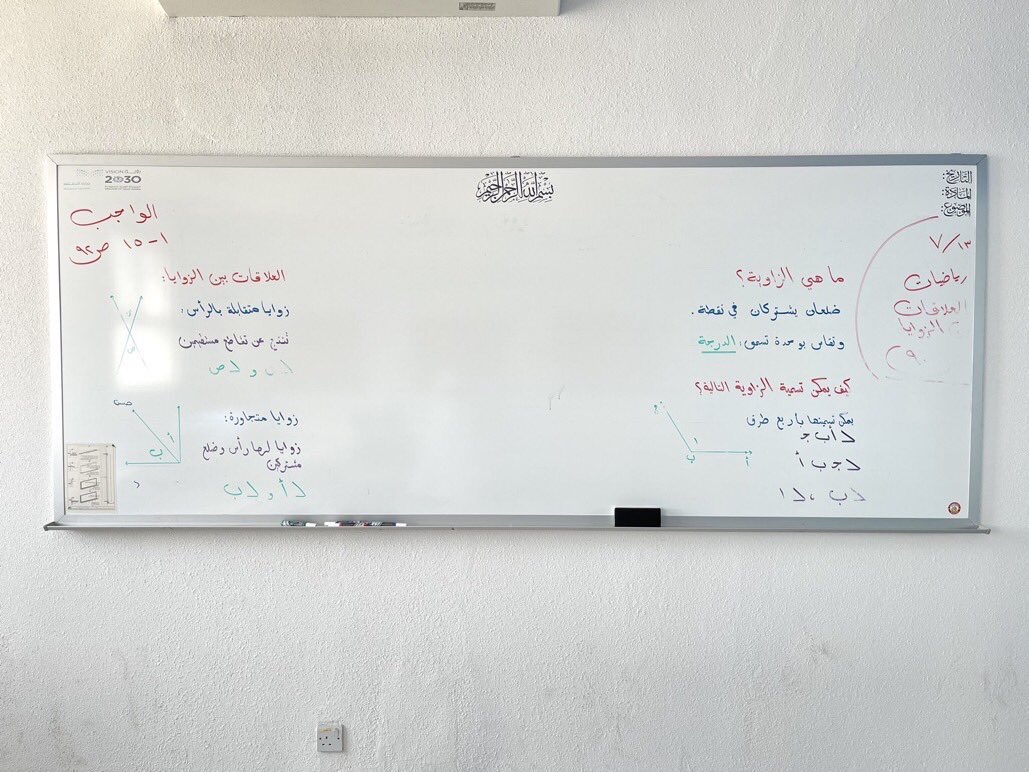 بسم الله الرحمن الرحيم
التاريخ:
المادة:
الموضوع:
١٣/٧
رياضيات
العلاقات
الزوايا
ما هي الزاوية؟
ضلعان يشتركان في نقطة.
وتقاس بوحدة تسمى: الدرجة
كيف يمكن تسمية الزاوية التالية؟
يمكن تسميتها بأربع طرق
∠أ ب جـ
∠جـ ب أ
∠ب ، ∠١
جـ
١
ب
أ
VISION رؤية
2030
الواجب
١-١٥ ص٩٢
العلاقات بين الزوايا:
زوايا متقابلة بالرأس:
تنتج عن تقاطع مستقيمين
∠س و ∠ص
زوايا متجاورة:
زوايا لها رأس وضلع
مشتركان
∠أ و ∠ب
أ
ب